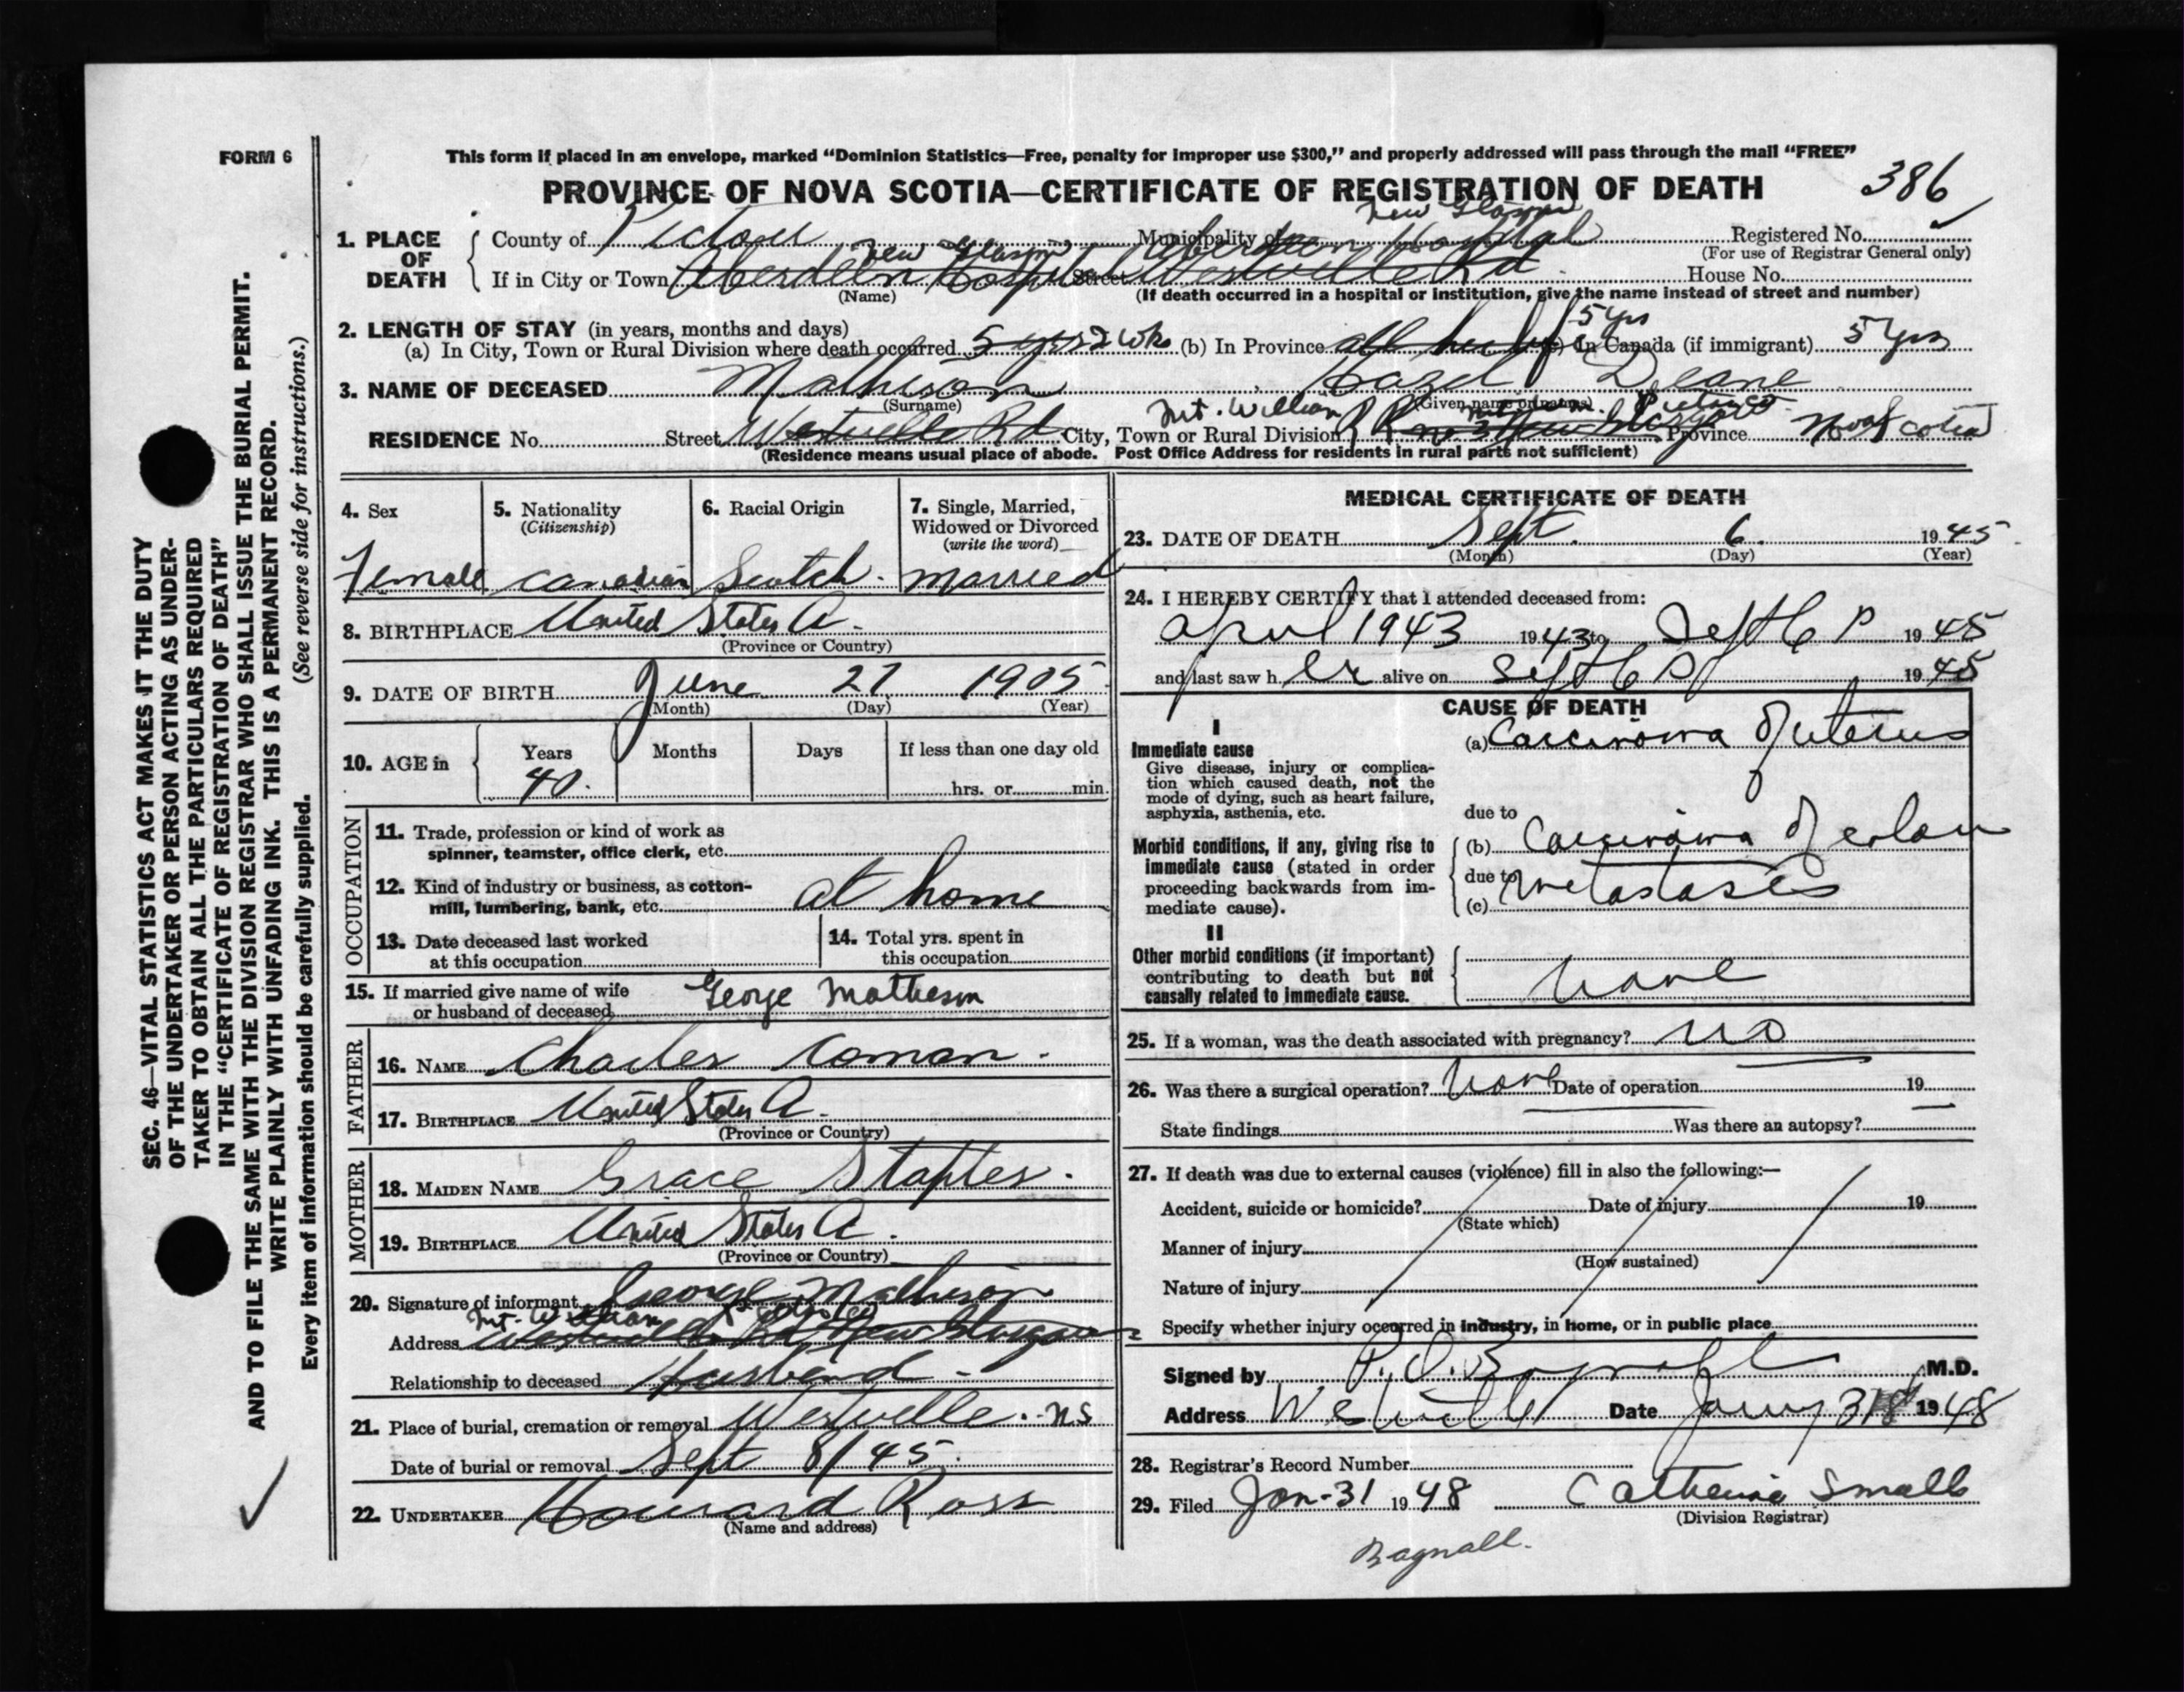 FORM 6
This form if placed in an envelope, marked “Dominion Statistics—Free, penalty for improper use $300,” and properly addressed will pass through the mail “FREE”
PROVINCE OF NOVA SCOTIA—CERTIFICATE OF REGISTRATION OF DEATH 386
1. PLACE OF DEATH
County of Pictou Municipality of New Glasgow Aberdeen Hospital Registered No.
(For use of Registrar General only)
If in City or Town New Glasgow Aberdeen Hospital Street Westville Rd House No.
(Name) (If death occurred in a hospital or institution, give the name instead of street and number)
2. LENGTH OF STAY (in years, months and days)
(a) In City, Town or Rural Division where death occurred 5 yrs 2 wks (b) In Province all her life 5 yrs (c) In Canada (if immigrant) 5 yrs
3. NAME OF DECEASED Matheson Hazel Deane
(Surname) (Given name or names)
RESIDENCE No. Street Westville Rd City, Town or Rural Division Mt. William Province Nova Scotia
(Residence means usual place of abode. Post Office Address for residents in rural parts not sufficient)
4. Sex
Female
5. Nationality
(Citizenship)
Canadian
6. Racial Origin
Scotch
7. Single, Married,
Widowed or Divorced
(write the word)
married
8. BIRTHPLACE United States A.
(Province or Country)
9. DATE OF BIRTH June 27 1905
(Month) (Day) (Year)
10. AGE in Years Months Days If less than one day old
40 hrs. or min.
OCCUPATION
11. Trade, profession or kind of work as
spinner, teamster, office clerk, etc.
12. Kind of industry or business, as cotton-
mill, lumbering, bank, etc. at home
13. Date deceased last worked
at this occupation
14. Total yrs. spent in
this occupation
15. If married give name of wife
or husband of deceased George Matheson
FATHER
16. NAME Charles Coman
17. BIRTHPLACE United States A.
(Province or Country)
MOTHER
18. MAIDEN NAME Grace Staples
19. BIRTHPLACE United States A.
(Province or Country)
20. Signature of informant George Matheson
Mt. William Pictou Co
Address Westville Rd New Glasgow
Relationship to deceased Husband
21. Place of burial, cremation or removal Westville. NS
Date of burial or removal Sept 8/45
22. UNDERTAKER Howard Ross
(Name and address)
MEDICAL CERTIFICATE OF DEATH
23. DATE OF DEATH Sept. 6 1945
(Month) (Day) (Year)
24. I HEREBY CERTIFY that I attended deceased from:
April 1943 1943 to Sept 6 1945
and last saw her alive on Sept 6 1945
CAUSE OF DEATH
I
Immediate cause
Give disease, injury or complica-
tion which caused death, not the
mode of dying, such as heart failure,
asphyxia, asthenia, etc.
(a) Carcinoma of uterus
due to
Morbid conditions, if any, giving rise to
immediate cause (stated in order
proceeding backwards from im-
mediate cause).
(b) Carcinoma of colon
due to metastases
(c)
II
Other morbid conditions (if important)
contributing to death but not
causally related to immediate cause.
None
25. If a woman, was the death associated with pregnancy? No
26. Was there a surgical operation? None Date of operation 19
State findings Was there an autopsy?
27. If death was due to external causes (violence) fill in also the following:—
Accident, suicide or homicide? Date of injury 19
(State which)
Manner of injury
(How sustained)
Nature of injury
Specify whether injury occurred in industry, in home, or in public place
Signed by M.D.
Address Westville Date 1948
28. Registrar's Record Number
29. Filed Jan-31 1948 Catherine Smalls
(Division Registrar)
Bagnall.
SEC. 46—VITAL STATISTICS ACT MAKES IT THE DUTY
OF THE UNDERTAKER OR PERSON ACTING AS UNDER-
TAKER TO OBTAIN ALL THE PARTICULARS REQUIRED
IN THE “CERTIFICATE OF REGISTRATION OF DEATH”
AND TO FILE THE SAME WITH THE DIVISION REGISTRAR WHO SHALL ISSUE THE BURIAL PERMIT.
WRITE PLAINLY WITH UNFADING INK. THIS IS A PERMANENT RECORD.
Every item of information should be carefully supplied. (See reverse side for instructions.)